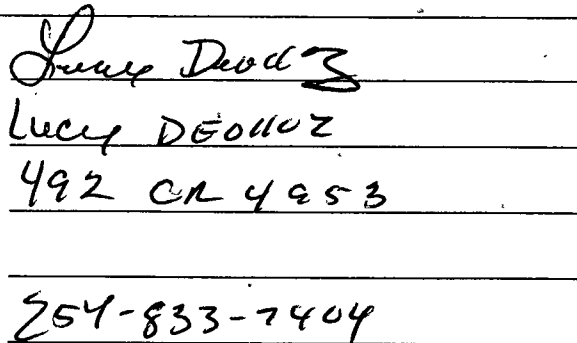 Lucy
Lucy DEOlloz
492 CR 4953
254-833-7404